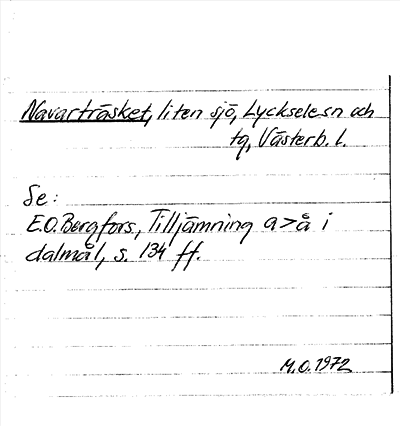 Navarträsket, liten sjö, Lyckselesn och
tg, Västerb. l.
Se:
E.O. Bergfors, Tilljämning a>å i
dalmål, s. 134 ff.
M.O. 1972